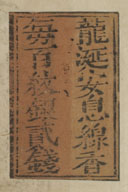 龍涎安息線香
每百枝銀貳錢